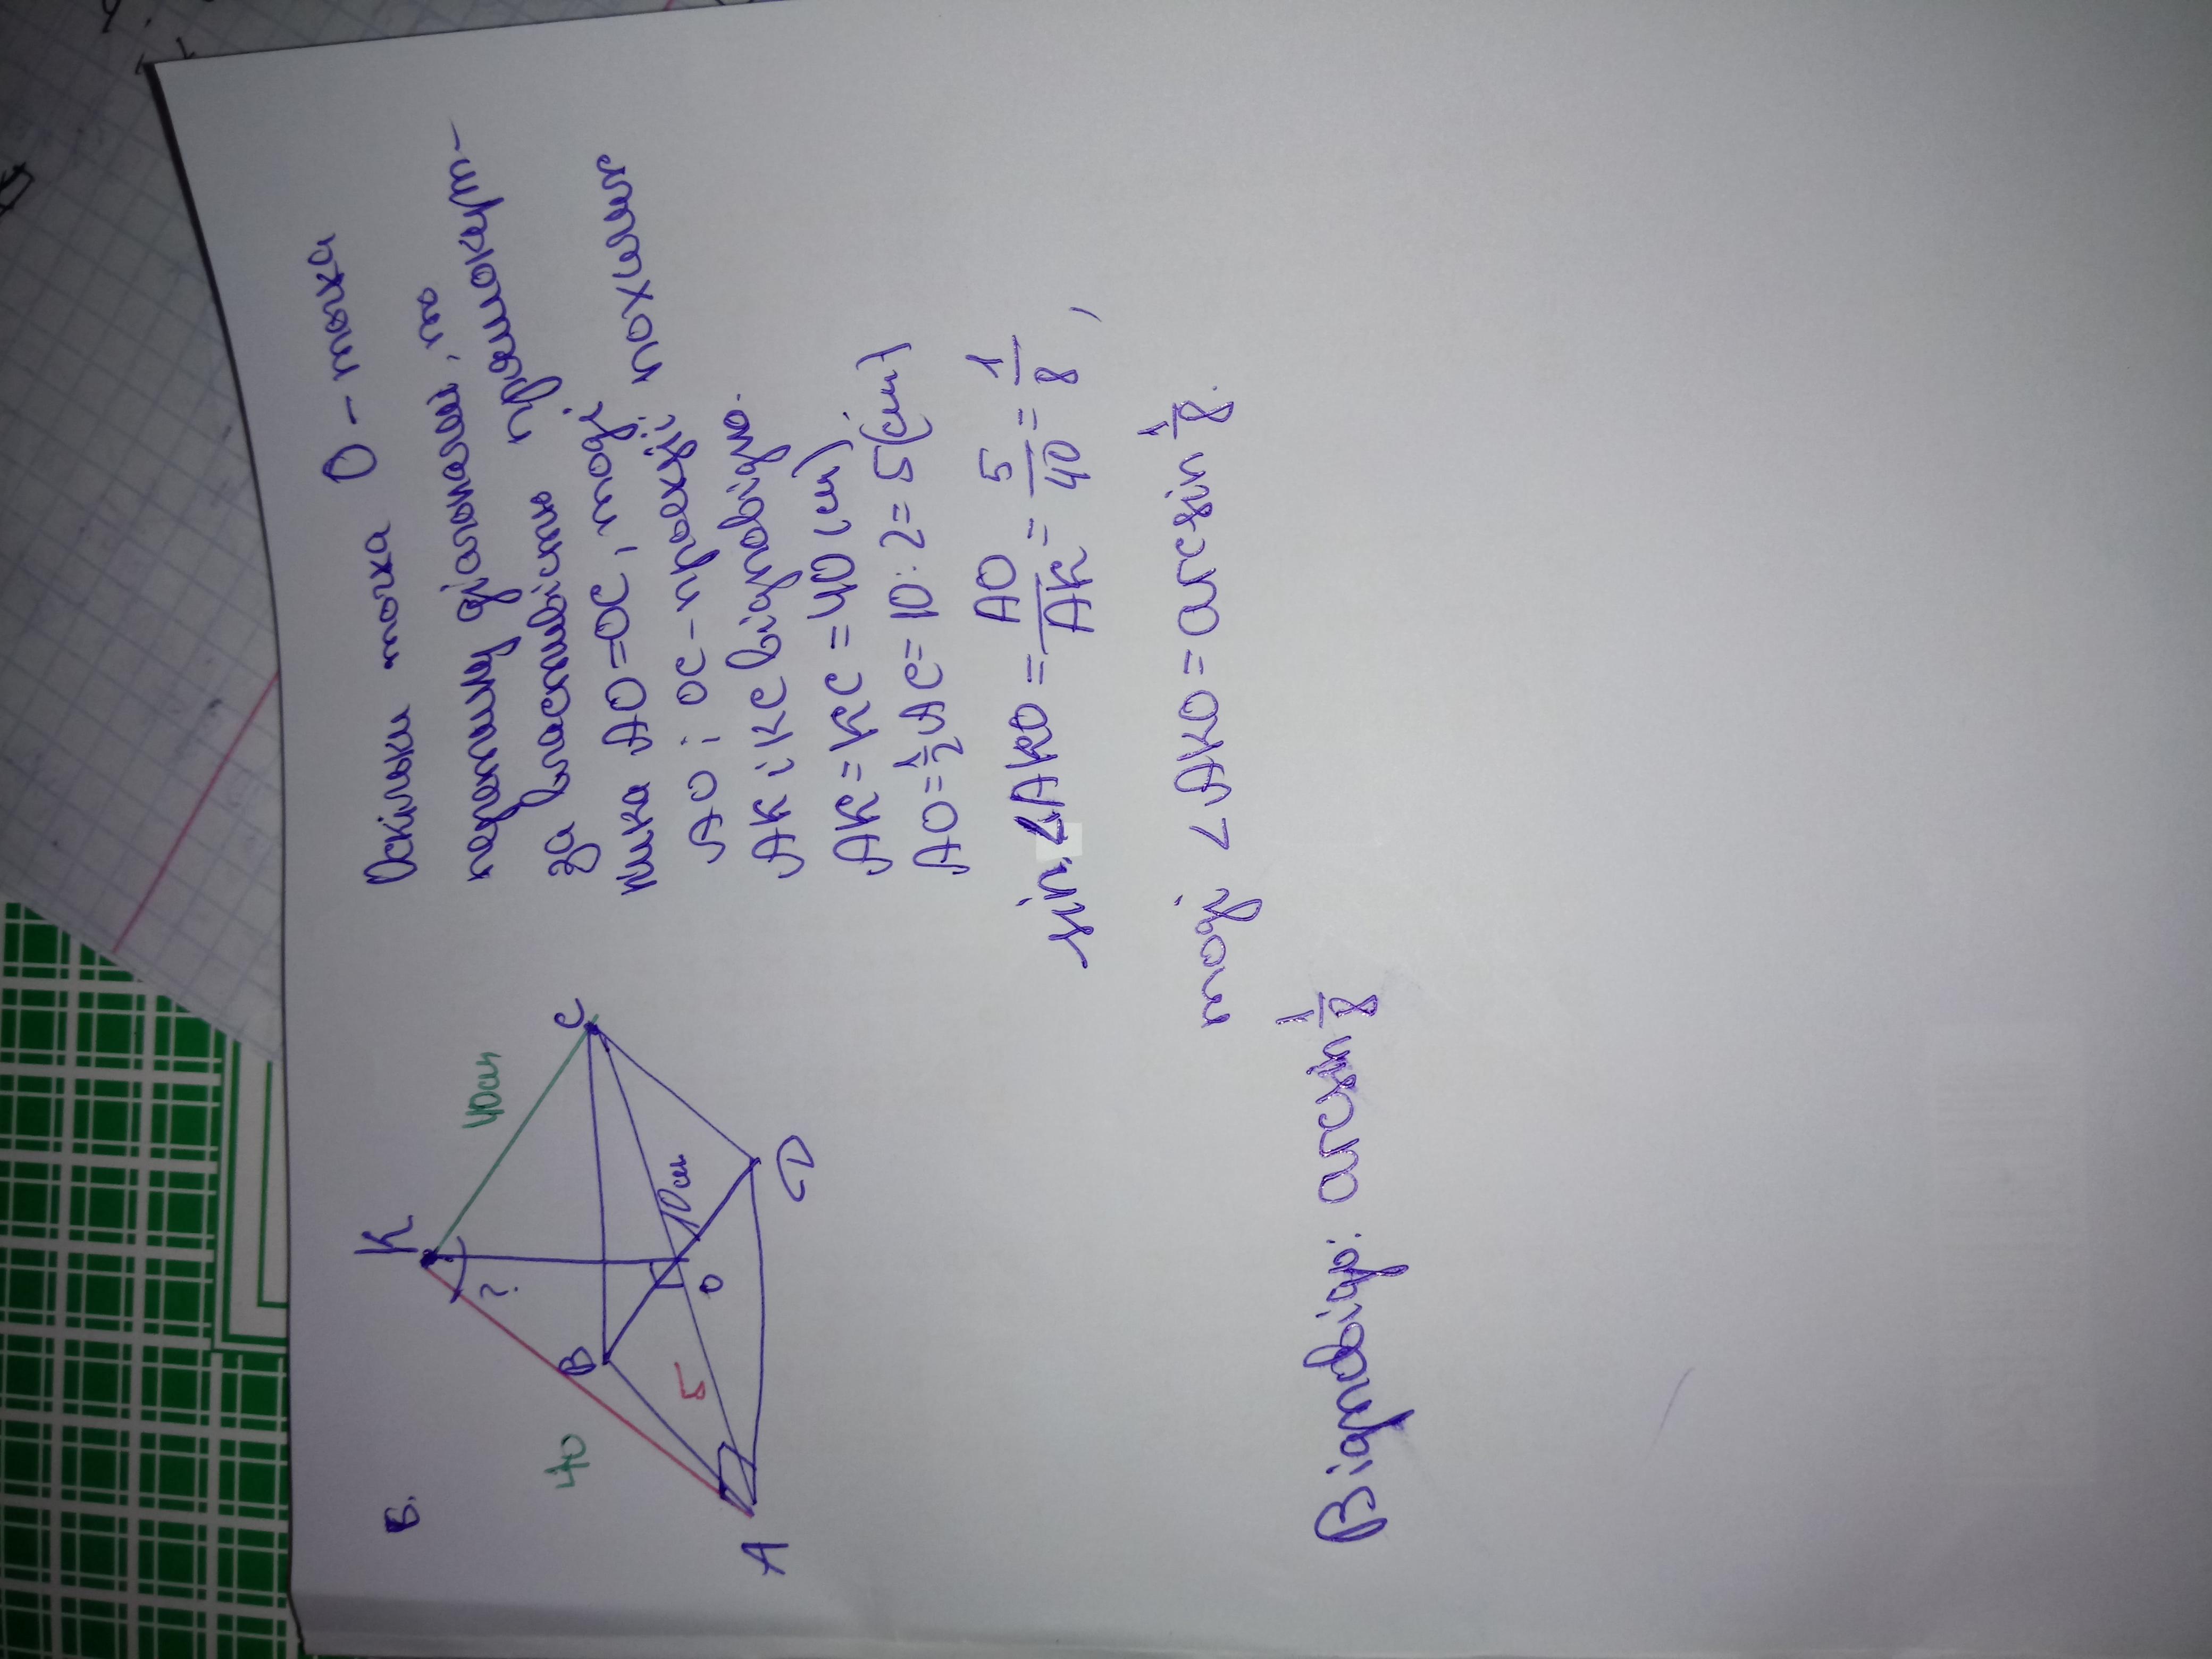 Б.
K
40см
C
40
B
?
5
10см
O
A
D
Оскільки точка O - точка
перетину діагоналей, то
за властивістю прямокутн-
ника AO=OC, тоді
AO і OC - проекції похилих
AK і KC відповідно.
AK = KC = 40 (см)
AO = 1/2 AC = 10 : 2 = 5 (см)
sin ∠AKO = AO/AK = 5/40 = 1/8 ,
тоді ∠AKO = arcsin 1/8.
Відповідь: arcsin 1/8